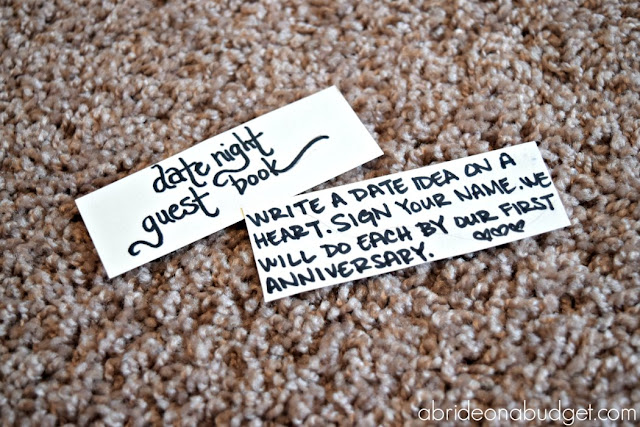 date night
guest book
WRITE A DATE IDEA ON A
HEART. SIGN YOUR NAME. WE
WILL DO EACH BY OUR FIRST
ANNIVERSARY.
abrideonabudget.com